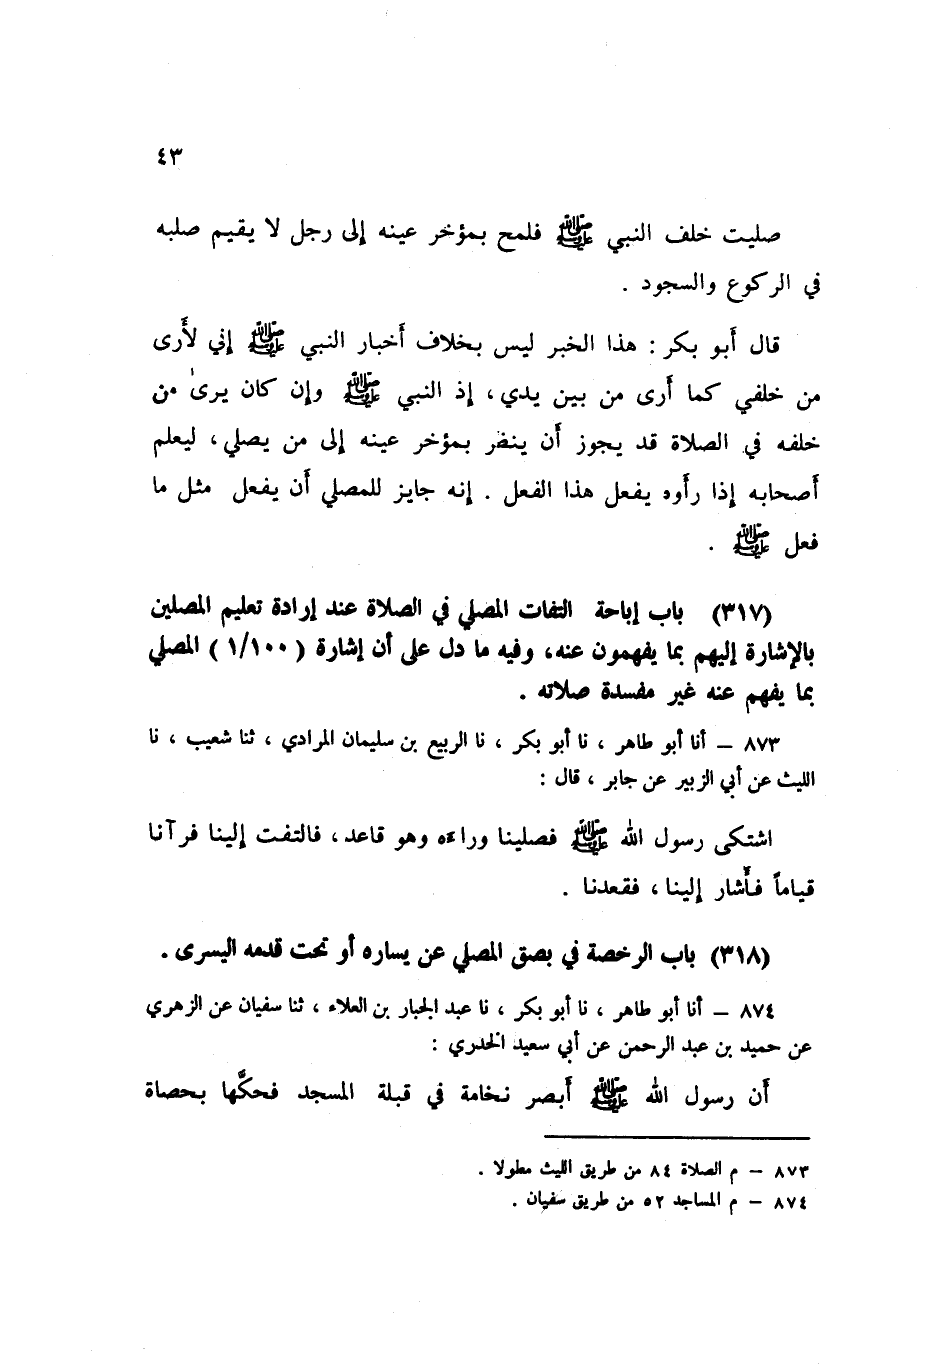 ٤٣
صليت خلف النبي ﷺ فلمح بمؤخر عينه إلى رجل لا يقيم صلبه
في الركوع والسجود .
قال أبو بكر : هذا الخبر ليس بخلاف أخبار النبي ﷺ إني لأرى
من خلفي كما أرى من بين يدي ، إذ النبي ﷺ وإن كان يرى من
خلفه في الصلاة قد يجوز أن ينظر بمؤخر عينه إلى من يصلي ، ليعلم
أصحابه إذا رأوه يفعل هذا الفعل . إنه جايز للمصلي أن يفعل مثل ما
فعل ﷺ .
(٣١٧) باب إباحة التفات المصلي في الصلاة عند إرادة تعليم المصلين
بالإشارة إليهم بما يفهمون عنه ، وفيه ما دل على أن إشارة ( ١/١٠٠ ) المصلي
بما يفهم عنه غير مفسدة صلاته .
٨٧٣ – أنا أبو طاهر ، نا أبو بكر ، نا الربيع بن سليمان المرادي ، ثنا شعيب ، نا
الليث عن أبي الزبير عن جابر ، قال :
اشتكى رسول الله ﷺ فصلينا وراءه وهو قاعد ، فالتفت إلينا فرآنا
قياماً فأشار إلينا ، فقعدنا .
(٣١٨) باب الرخصة في بصق المصلي عن يساره أو تحت قدمه اليسرى .
٨٧٤ – أنا أبو طاهر ، نا أبو بكر ، نا عبد الجبار بن العلاء ، ثنا سفيان عن الزهري
عن حميد بن عبد الرحمن عن أبي سعيد الخدري :
أن رسول الله ﷺ أبصر نخامة في قبلة المسجد فحكّها بحصاة
٨٧٣ – م الصلاة ٨٤ من طريق الليث مطولا .
٨٧٤ – م المساجد ٥٢ من طريق سفيان .